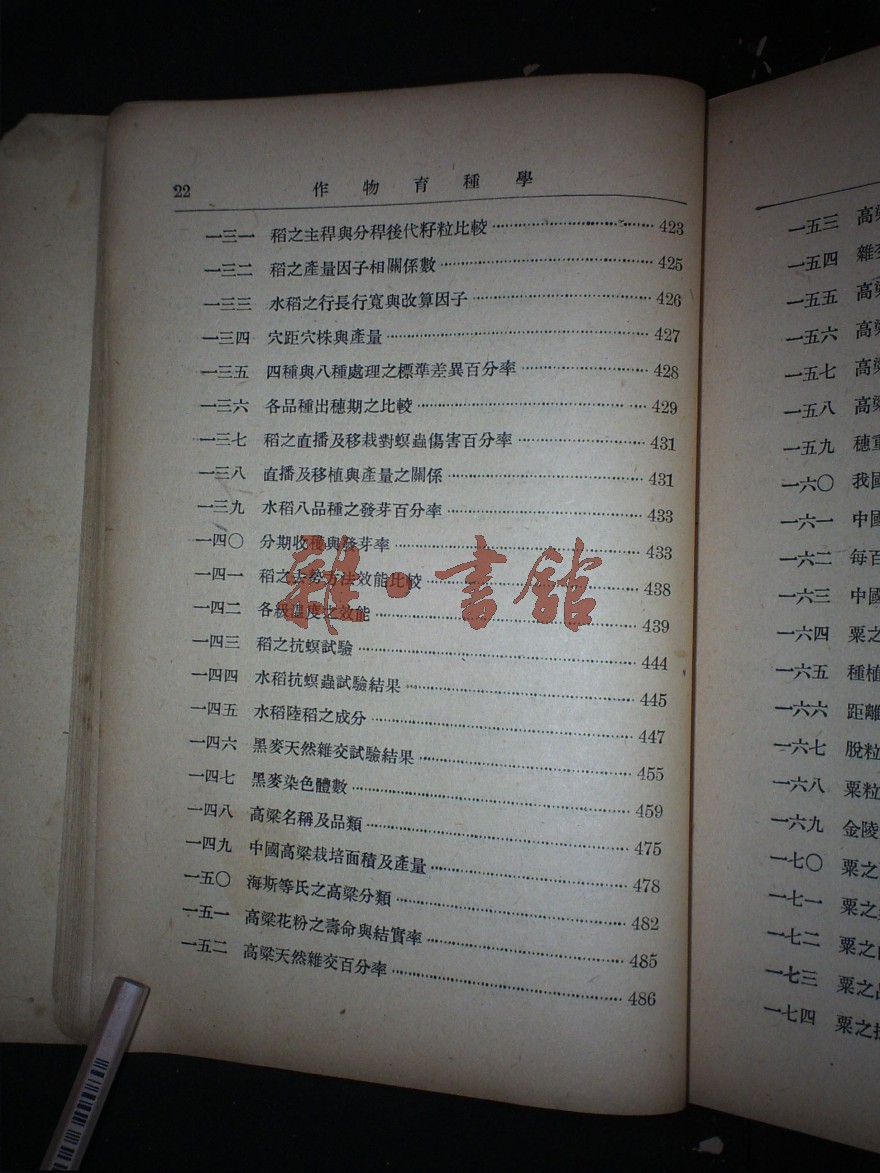 22 作物育種學
一三一 稻之主稈與分稈後代籽粒比較 423
一三二 稻之產量因子相關係數 425
一三三 水稻之行長行寬與改算因子 426
一三四 穴距穴株與產量 427
一三五 四種與八種處理之標準差異百分率 428
一三六 各品種出穗期之比較 429
一三七 稻之直播及移栽對螟蟲傷害百分率 431
一三八 直播及移植與產量之關係 431
一三九 水稻八品種之發芽百分率 433
一四〇 分期收穫與發芽率 433
一四一 稻之去勢方法效能比較 438
一四二 各級溫度之效能 439
一四三 稻之抗螟試驗 444
一四四 水稻抗螟蟲試驗結果 445
一四五 水稻陸稻之成分 447
一四六 黑麥天然雜交試驗結果 455
一四七 黑麥染色體數 459
一四八 高粱名稱及品類 475
一四九 中國高粱栽培面積及產量 478
一五〇 海斯等氏之高粱分類 482
一五一 高粱花粉之壽命與結實率 485
一五二 高粱天然雜交百分率 486
雜·書館
一五三 高
一五四 雜
一五五 高
一五六 高
一五七 高
一五八 高
一五九 穗重
一六〇 我國
一六一 中國
一六二 每百
一六三 中國
一六四 粟之
一六五 種植
一六六 距離
一六七 脫粒
一六八 粟粒
一六九 金陵
一七〇 粟之
一七一 粟之
一七二 粟之
一七三 粟之
一七四 粟之